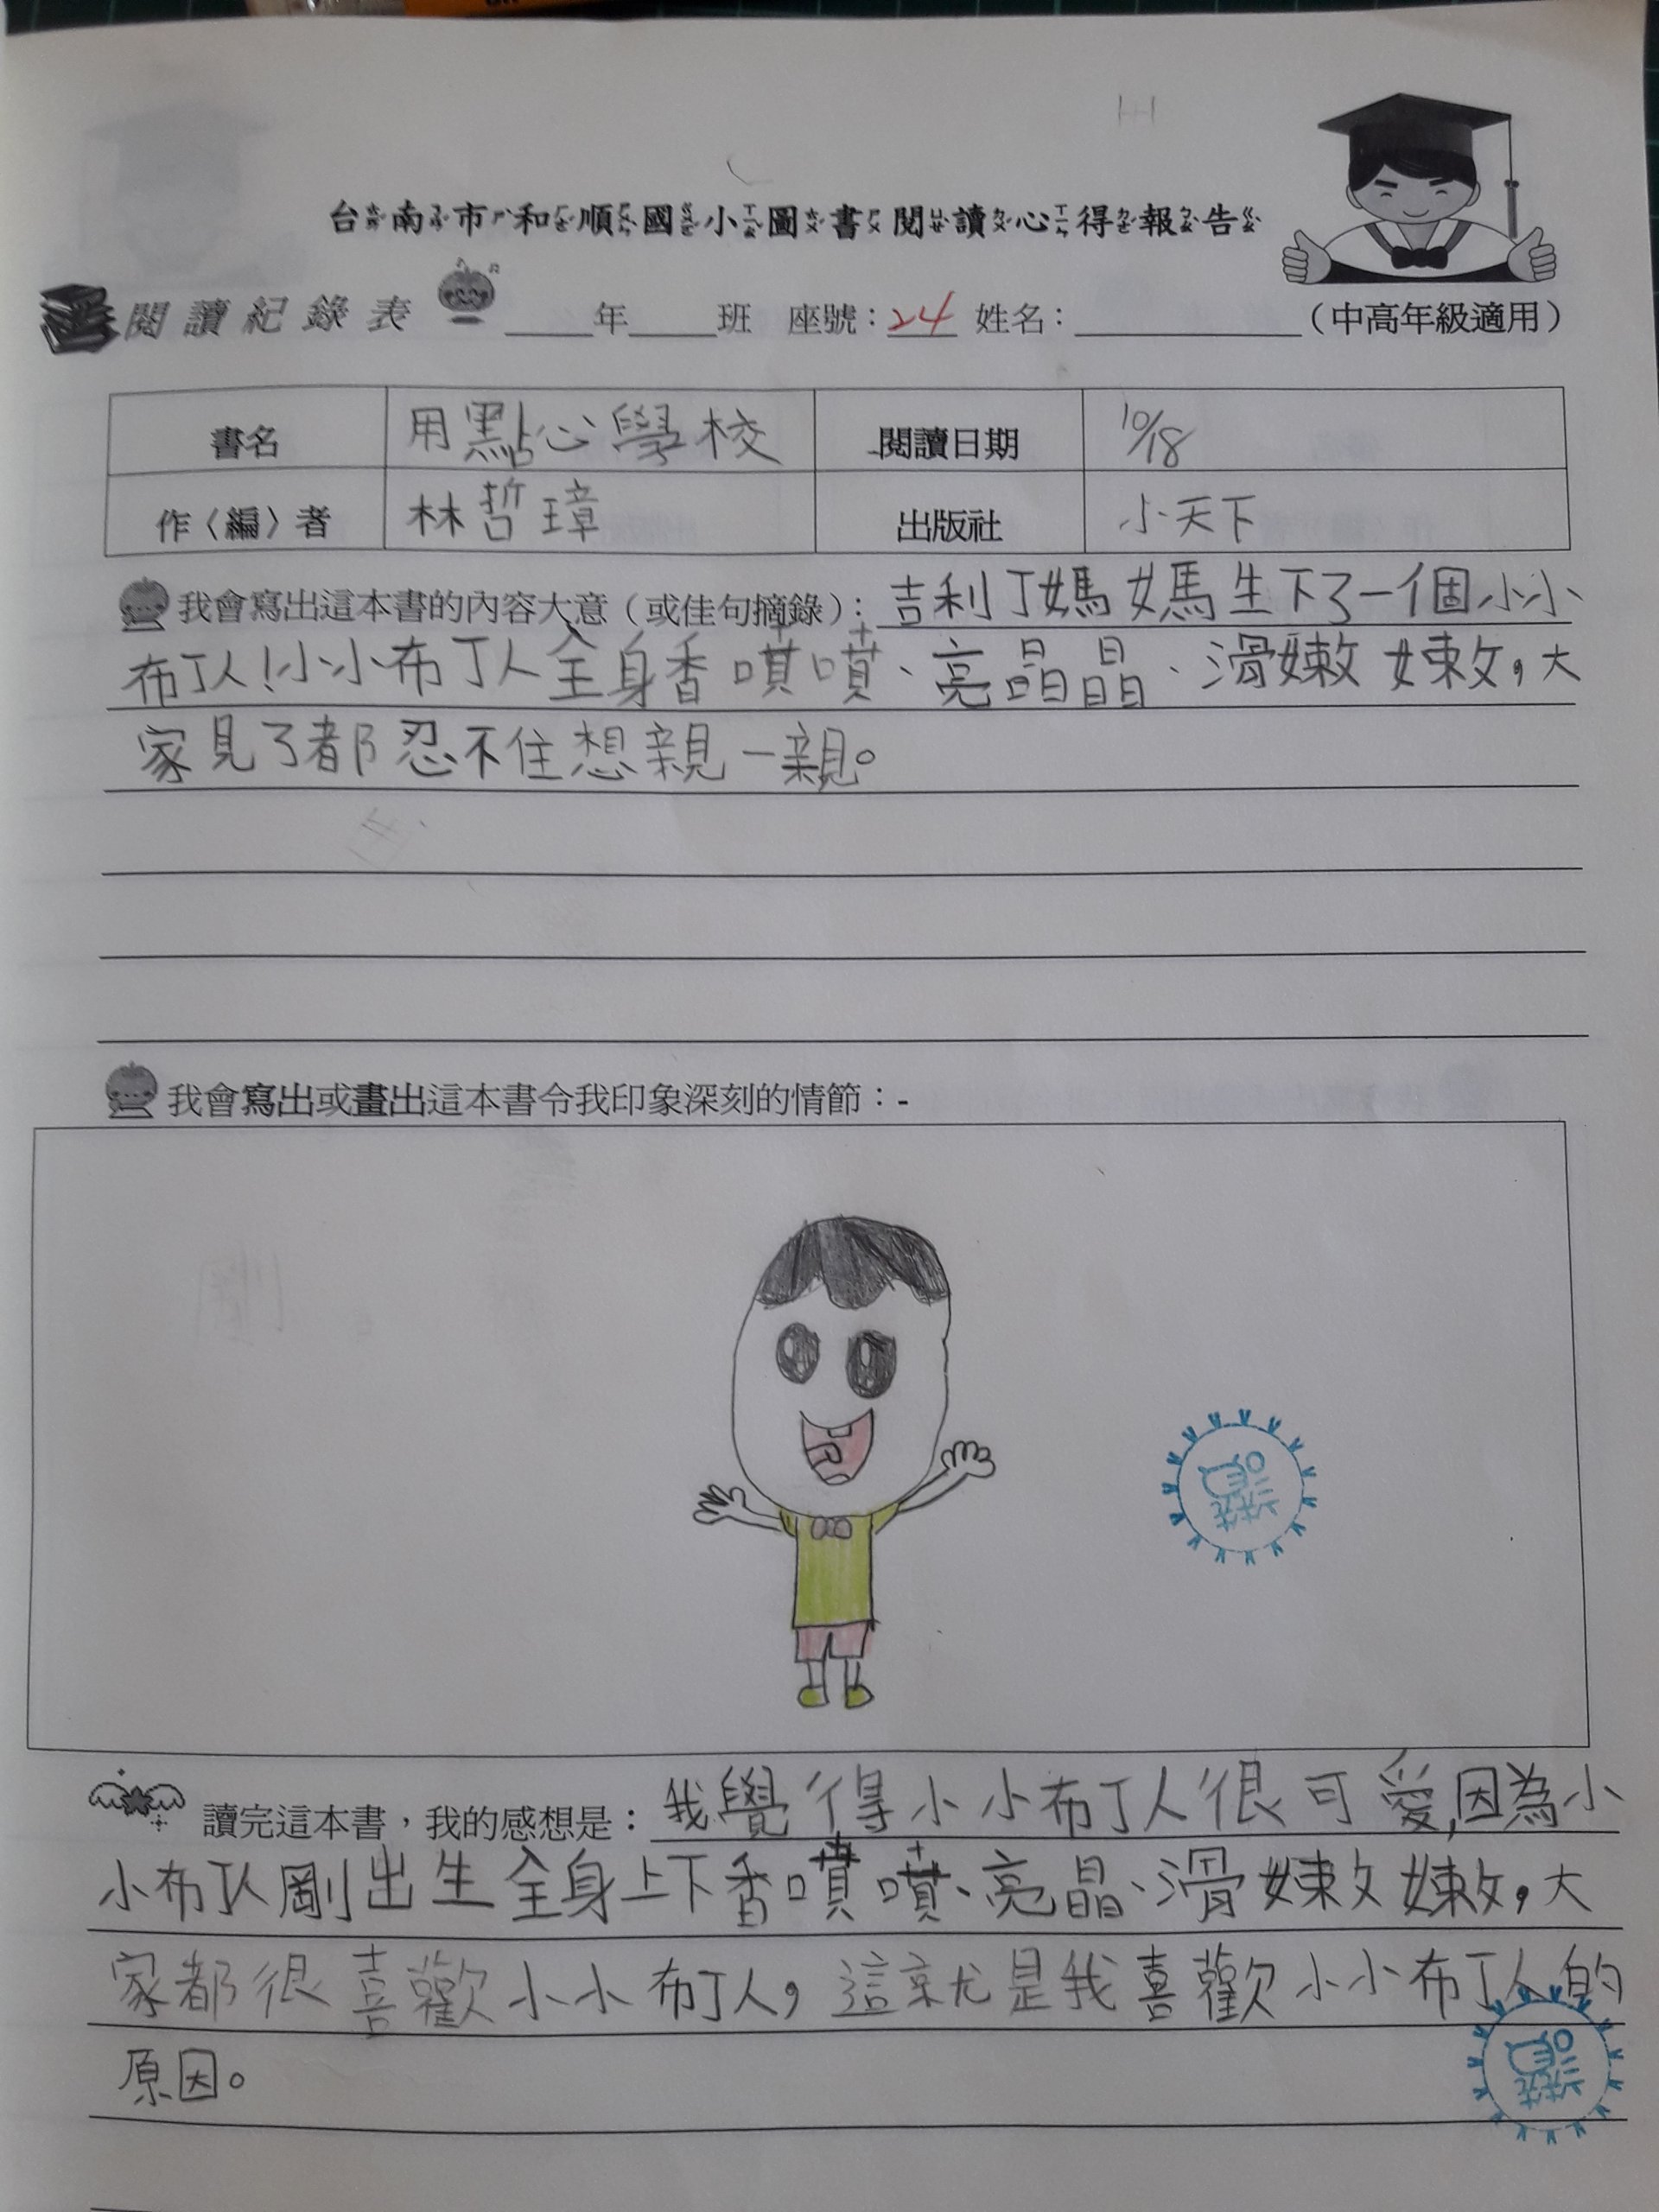 台南市和順國小圖書閱讀心得報告
閱讀紀錄表 ____年____班 座號：24 姓名：____________（中高年級適用）
書名 用點心學校 閱讀日期 10/18
作〈編〉者 林哲璋 出版社 小天下
我會寫出這本書的內容大意（或佳句摘錄）：吉利丁媽媽生下了一個小小
布丁人！小小布丁人全身香噴噴、亮晶晶、滑嫩嫩，大
家見了都忍不住想親一親。
我會寫出或畫出這本書令我印象深刻的情節：-
讀完這本書，我的感想是：我覺得小小布丁人很可愛，因為小
小布丁人剛出生全身上下香噴噴、亮晶、滑嫩嫩，大
家都很喜歡小小布丁人，這就是我喜歡小小布丁人的
原因。